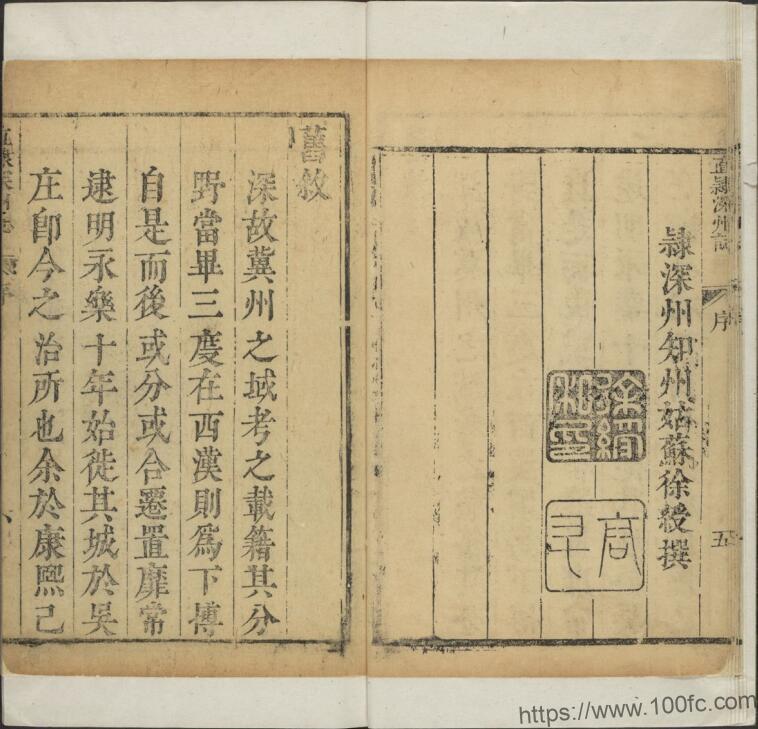 直隸深州志
序
五
隸深州知州姑蘇徐綬撰
舊敘
深故冀州之域考之載籍其分
野當畢三度在西漢則爲下博
自是而後或分或合遷置靡常
逮明永樂十年始徙其城於吳
庄卽今之治所也余於康熙己
https://www.100fc.com